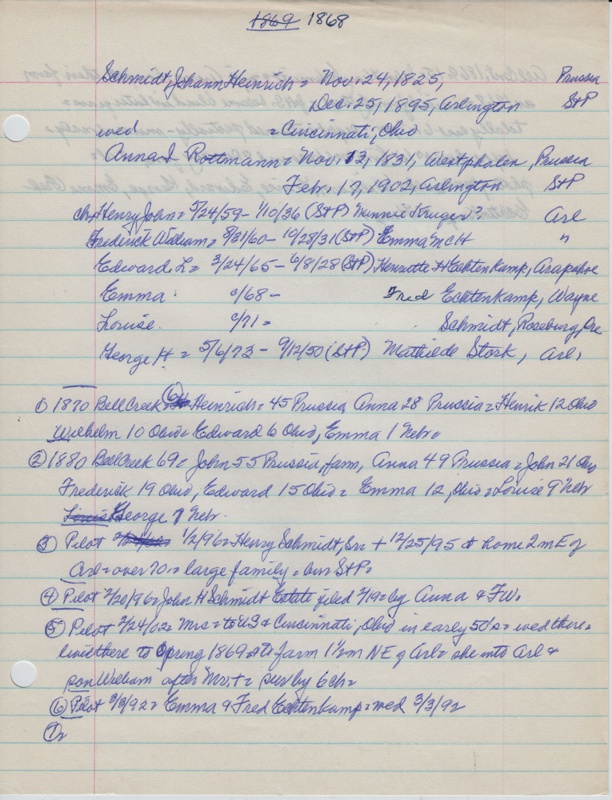 1869 1868
Schmidt, Johann Heinrich = Nov. 24, 1825, Prussia
Dec. 25, 1895, Arlington St P
wed = Cincinnati, Ohio
Anna I Rottmann = Nov. 13, 1831, Westphalen, Prussia
Febr. 17, 1902, Arlington St P
ch, Henry John = 5/24/59 - 1/10/36 (St P) Minnie Kruger? Arl
Frederick William = 8/31/60 - 10/28/31 (St P) Emma Melt "
Edward L = 3/24/65 - 6/8/28 (St P) Henrette H Echtenkamp, Arapahoe
Emma c/68 - Fred Echtenkamp, Wayne
Louise c/71 = Schmidt, Roseburg, Ore
George H. = 5/6/73 - 9/12/50 (St P) Mathilde Stork, Arl,
① 1870 Bell Creek 6 = Heinrich = 45 Prussia, Anna 28 Prussia = Henrik 12 Ohio
Wilhelm 10 Ohio = Edward 6 Ohio, Emma 1 Nebr.
② 1880 Bell Creek 69 = John 55 Prussia, farm, Anna 49 Prussia = John 21 Ohio
Frederick 19 Ohio, Edward 15 Ohio = Emma 12, Ohio = Louise 9 Nebr
Louise George 7 Nebr.
③ Pilot 1/2/96 = Henry Schmidt, Sr. + 12/25/95 at home 2 m E of
Arl = over 70 = large family = bur St P.
④ Pilot 2/20/96 = John H Schmidt Estate filed 2/19 = by Anna & F W.
⑤ Pilot 2/24/02 = Mrs = to US & Cincinnati, Ohio in early 50's = wed there =
live there to Spring 1869 = to farm 1½ m NE of Arl = she into Arl &
son William after Mr. + = surv by 6 ch =
⑥ Pilot 3/3/92 = Emma & Fred Echtenkamp = wed 3/3/92
⑦